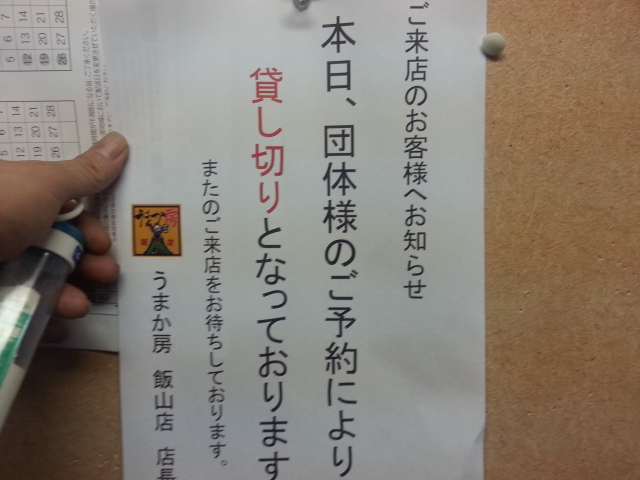 ご来店のお客様へお知らせ
本日、団体様のご予約により
貸し切りとなっております
またのご来店をお待ちしております。
うまか房 飯山店 店長
うまか房
7 14 21 28
6 13 20 27
5 12 19 26
7 14 21 28
6 13 20 27
5 12 19 26